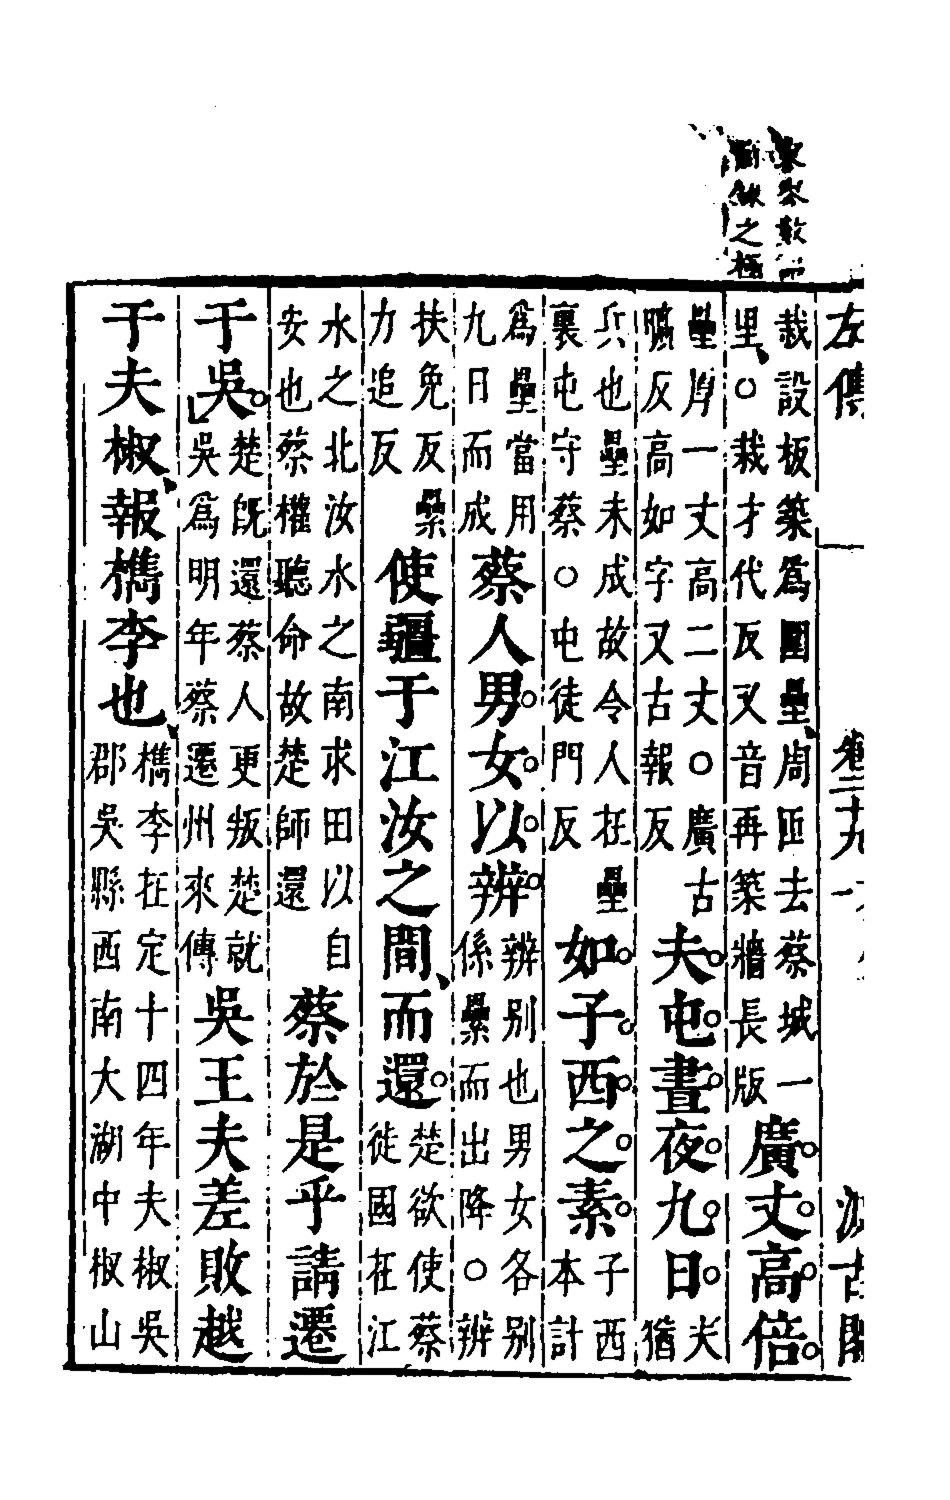 之極
左傳
卷二十九
汲古閣
栽設板築爲圍壘、周匝去蔡城一
里、○栽才代反又音再築牆長版
廣丈高倍
壘厚一丈高二丈○廣古
曠反高如字又古報反
夫屯晝夜九日
夫
猶
兵也壘未成故令人在壘
裏屯守蔡○屯徒門反
如子西之素
子西
本計
爲壘當用
九日而成
蔡人男女以辨
辨別也男女各別
係纍而出降○辨
扶免反纍
力追反
使疆于江汝之間、而還
楚欲使蔡
徙國在江
水之北汝水之南求田以自
安也蔡權聽命故楚師還
蔡於是乎請遷
于吳。
楚既還蔡人更叛楚就
吳爲明年蔡遷州來傳
吳王夫差敗越
于夫椒、報檇李也、
檇李在定十四年夫椒吳
郡吳縣西南大湖中椒山